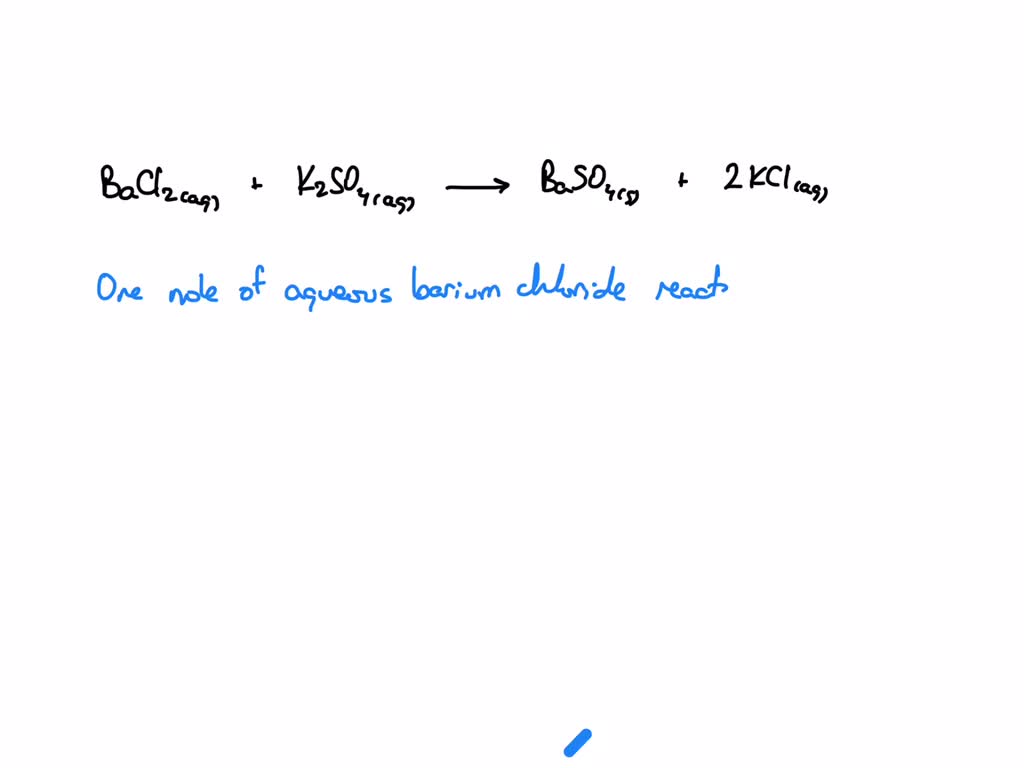 BaCl2(aq) + K2SO4(aq) → BaSO4(s) + 2KCl(aq)
One mole of aqueous barium chloride reacts